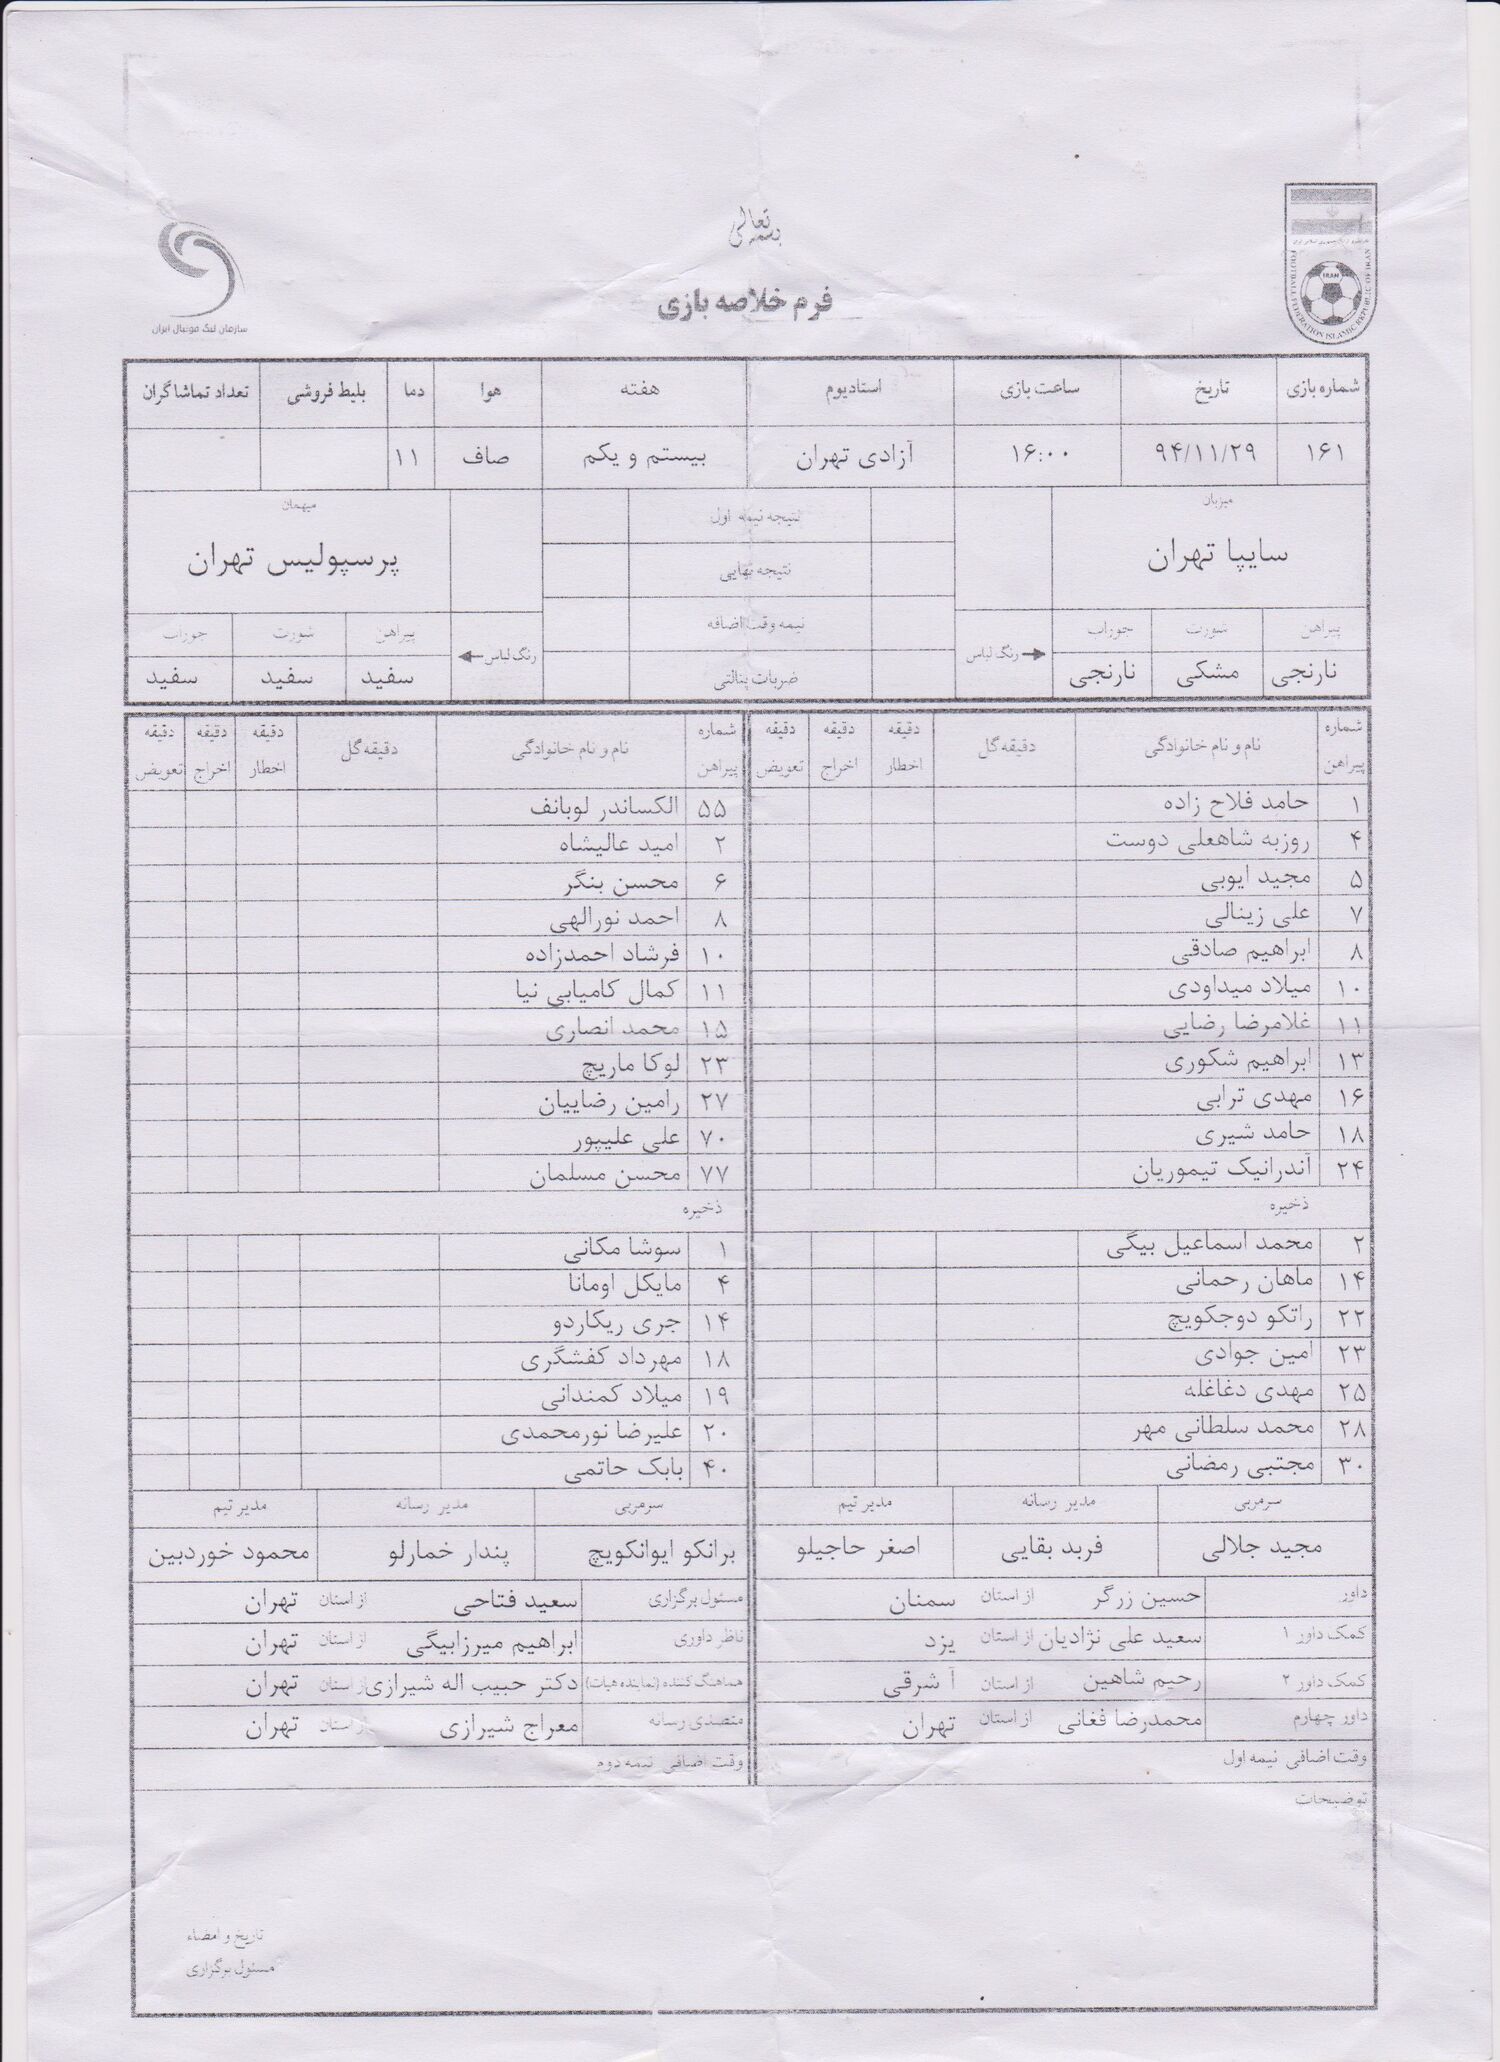 بسمه تعالی
فرم خلاصه بازی
سازمان لیگ فوتبال ایران
IRAN
FOOTBALL FEDERATION ISLAMIC REPUBLIC OF IRAN
شماره بازی تاریخ ساعت بازی استادیوم هفته هوا دما بلیط فروشی تعداد تماشاگران
۱۶۱ ۹۴/۱۱/۲۹ ۱۶:۰۰ آزادی تهران بیستم و یکم صاف ۱۱
میزبان نتیجه نیمه اول میهمان
سایپا تهران نتیجه نهایی پرسپولیس تهران
پیراهن شورت جوراب نیمه وقت اضافه پیراهن شورت جوراب
رنگ لباس رنگ لباس
نارنجی مشکی نارنجی ضربات پنالتی سفید سفید سفید
شماره پیراهن نام و نام خانوادگی دقیقه گل دقیقه اخطار دقیقه اخراج دقیقه تعویض شماره پیراهن نام و نام خانوادگی دقیقه گل دقیقه اخطار دقیقه اخراج دقیقه تعویض
۱ حامد فلاح زاده ۵۵ الکساندر لوبانف
۴ روزبه شاهعلی دوست ۲ امید عالیشاه
۵ مجید ایوبی ۶ محسن بنگر
۷ علی زینالی ۸ احمد نورالهی
۸ ابراهیم صادقی ۱۰ فرشاد احمدزاده
۱۰ میلاد میداودی ۱۱ کمال کامیابی نیا
۱۱ غلامرضا رضایی ۱۵ محمد انصاری
۱۳ ابراهیم شکوری ۲۳ لوکا ماریچ
۱۶ مهدی ترابی ۲۷ رامین رضاییان
۱۸ حامد شیری ۷۰ علی علیپور
۲۴ آندرانیک تیموریان ۷۷ محسن مسلمان
ذخیره ذخیره
۲ محمد اسماعیل بیگی ۱ سوشا مکانی
۱۴ ماهان رحمانی ۴ مایکل اومانا
۲۲ راتکو دوجکویچ ۱۴ جری ریکاردو
۲۳ امین جوادی ۱۸ مهرداد کفشگری
۲۵ مهدی دغاغله ۱۹ میلاد کمندانی
۲۸ محمد سلطانی مهر ۲۰ علیرضا نورمحمدی
۳۰ مجتبی رمضانی ۴۰ بابک حاتمی
سرمربی مدیر رسانه مدیر تیم سرمربی مدیر رسانه مدیر تیم
مجید جلالی فربد بقایی اصغر حاجیلو برانکو ایوانکویچ پندار خمارلو محمود خوردبین
داور حسین زرگر از استان سمنان مسئول برگزاری سعید فتاحی از استان تهران
کمک داور ۱ سعید علی نژادیان از استان یزد ناظر داوری ابراهیم میرزابیگی از استان تهران
کمک داور ۲ رحیم شاهین از استان آ شرقی هماهنگ کننده (نماینده هیات) دکتر حبیب اله شیرازی از استان تهران
داور چهارم محمدرضا فغانی از استان تهران متصدی رسانه معراج شیرازی از استان تهران
وقت اضافی نیمه اول وقت اضافی نیمه دوم
توضیحات
تاریخ و امضاء
مسئول برگزاری